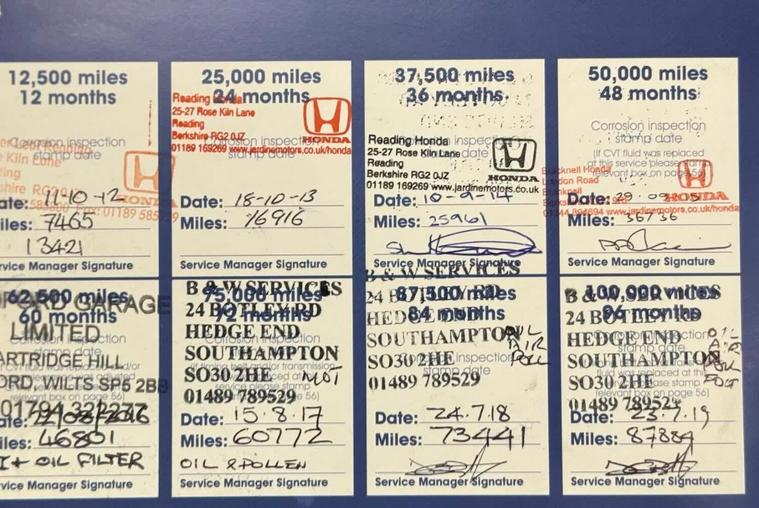 12,500 miles
12 months
Corrosion inspection
stamp date
Kiln Lane
shire RG2 0
01189 585
HONDA
ate: 11-10-12
Miles: 7465
13421
Service Manager Signature
25,000 miles
24 months
Reading Honda
25-27 Rose Kiln Lane
Reading
Berkshire RG2 0JZ
01189 169269 www.jardinemotors.co.uk/honda
HONDA
Corrosion inspection
stamp date
Date: 18-10-13
Miles: 16916
Service Manager Signature
37,500 miles
36 months
Reading Honda
25-27 Rose Kiln Lane
Reading
Berkshire RG2 0JZ
01189 169269 www.jardinemotors.co.uk/honda
HONDA
date
Date: 10-9-14
Miles: 25961
Service Manager Signature
50,000 miles
48 months
Corrosion inspection
stamp date
(If CVT fluid was replaced
at this service please stamp
relevant box on page 56)
Bracknell Honda
London Road
Bracknell
www.jardinemotors.co.uk/honda
HONDA
Date: 29 09
Miles: 36736
Service Manager Signature
62,500 miles
60 months
GARAGE
LIMITED
ARTRIDGE HILL
ORD, WILTS SP5 2BB
01794 322277
Miles: 46801
+ OIL FILTER
Service Manager Signature
75,000 miles
72 months
B & W SERVICES
24 BOTLEY RD
HEDGE END
SOUTHAMPTON
SO30 2HE
01489 789529
MOT
Date: 15.8.17
Miles: 60772
OIL & POLLEN
Service Manager Signature
87,500 miles
84 months
B & W SERVICES
24 BOTLEY RD
HEDGE END
SOUTHAMPTON
SO30 2HE
01489 789529
OIL
AIR
POLL
Date: 24.7.18
Miles: 73441
Service Manager Signature
100,000 miles
96 months
B & W SERVICES
24 BOTLEY RD
HEDGE END
SOUTHAMPTON
SO30 2HE
01489 789529
OIL
AIR
Date: 23.7.19
Miles: 87884
Service Manager Signature